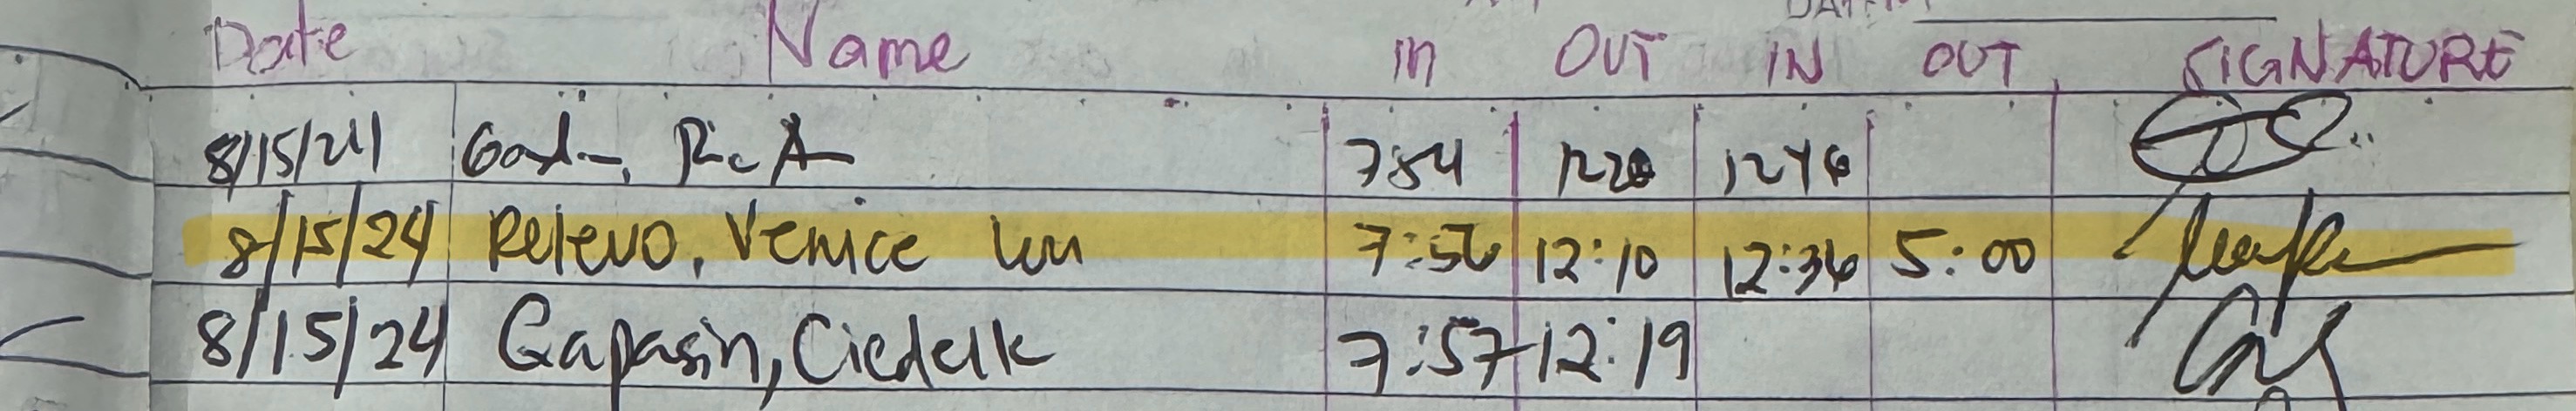 Date Name In OUT IN OUT SIGNATURE
8/15/24 7:54 1220 1246
8/15/24 Relevo, Venice 7:56 12:10 12:36 5:00
8/15/24 Gapasin, Ciedelk 7:57 12:19